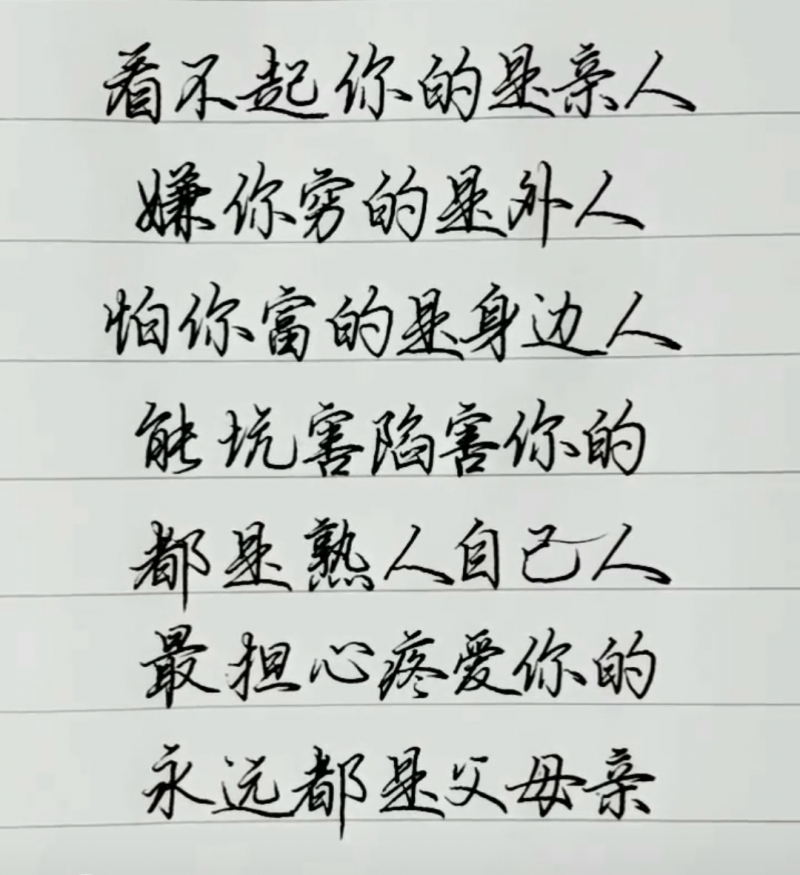 看不起你的是亲人
嫌你穷的是外人
怕你富的是身边人
能坑害陷害你的
都是熟人自己人
最担心疼爱你的
永远都是父母亲